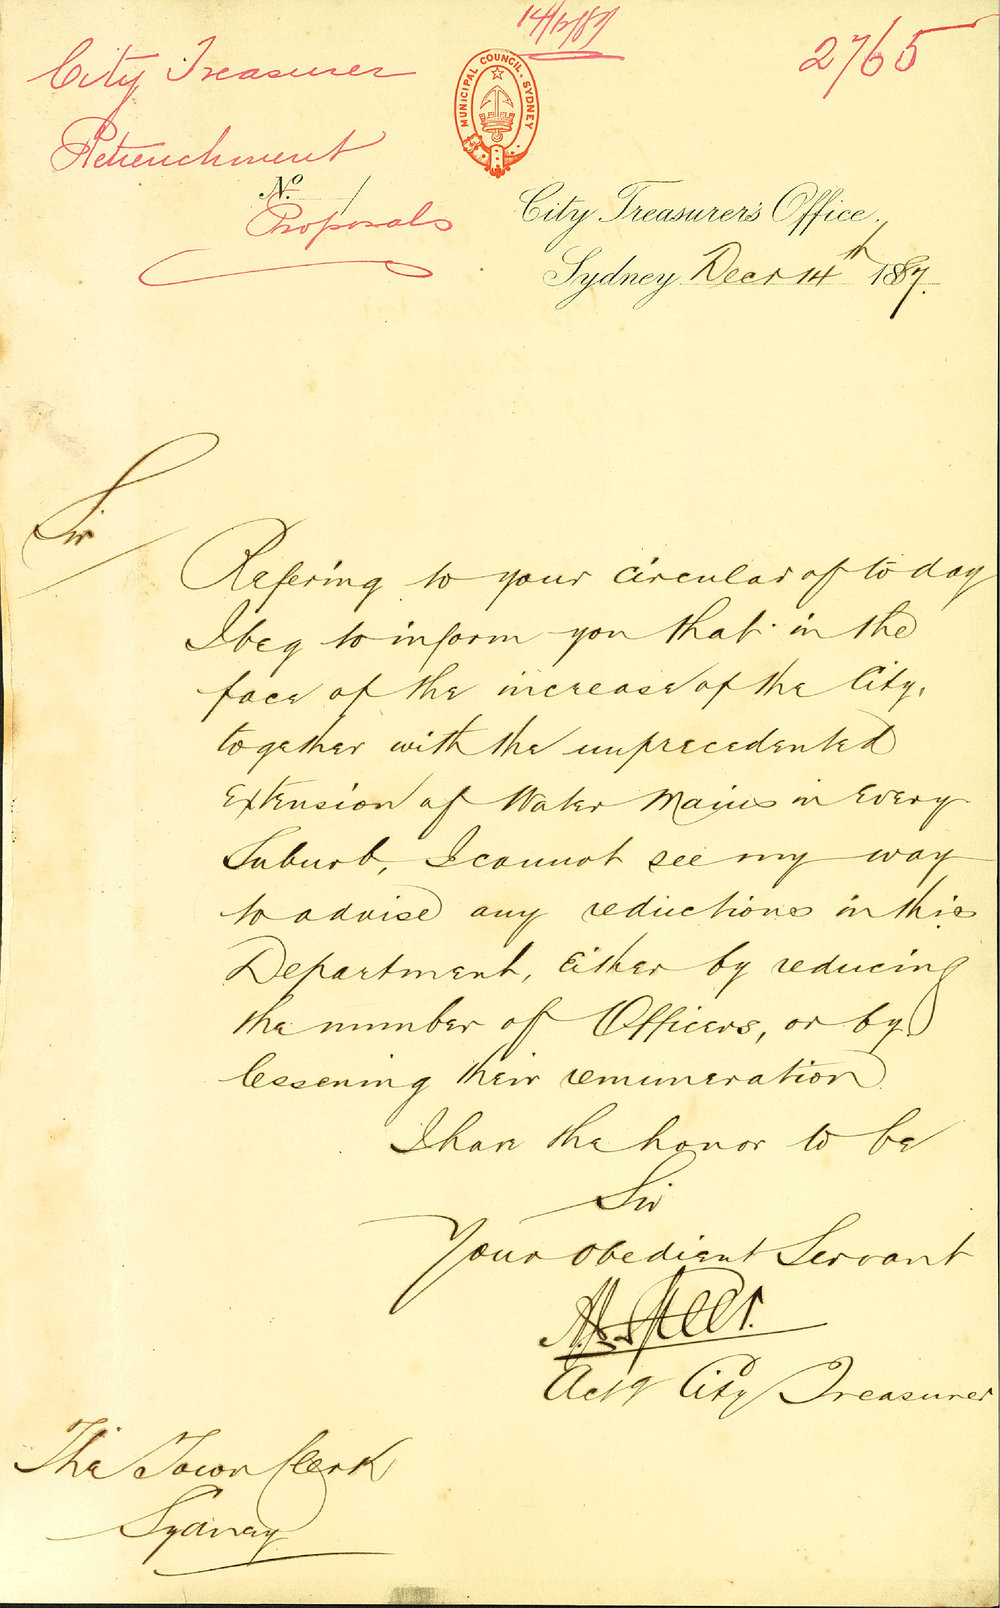 14/12/87
2765
City Treasurer
Retrenchment
Proposals
MUNICIPAL COUNCIL. SYDNEY
No. /
City Treasurer's Office.
Sydney Decr 14th 1887.
Sir
Refering to your circular of to day
I beg to inform you that in the
face of the increase of the City,
together with the unprecedented
extension of Water Mains in every
Suburb, I cannot see my way
to advise any reductions in this
Department, either by reducing
the number of Officers, or by
lessening their remuneration
I have the honor to be
Sir
Your obedient Servant
Actg City Treasurer
The Town Clerk
Sydney